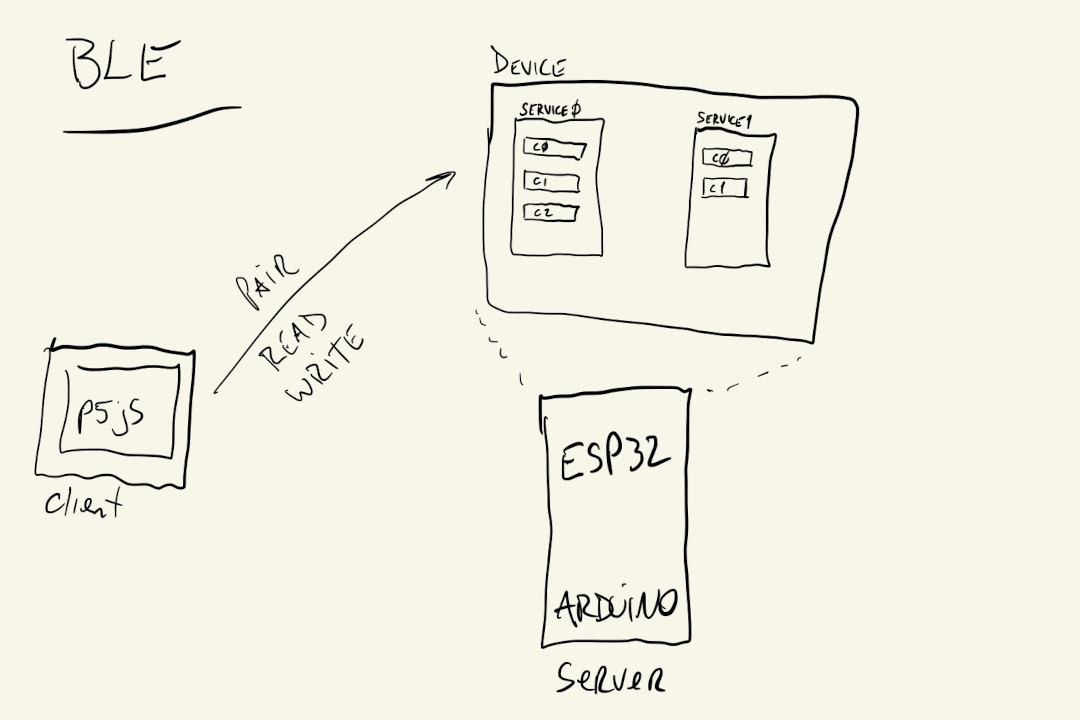 BLE
DEVICE
SERVICE0
C0
C1
C2
SERVICE1
C0
C1
PAIR
READ
WRITE
P5jS
Client
ESP32
ARDUiNO
SerVer